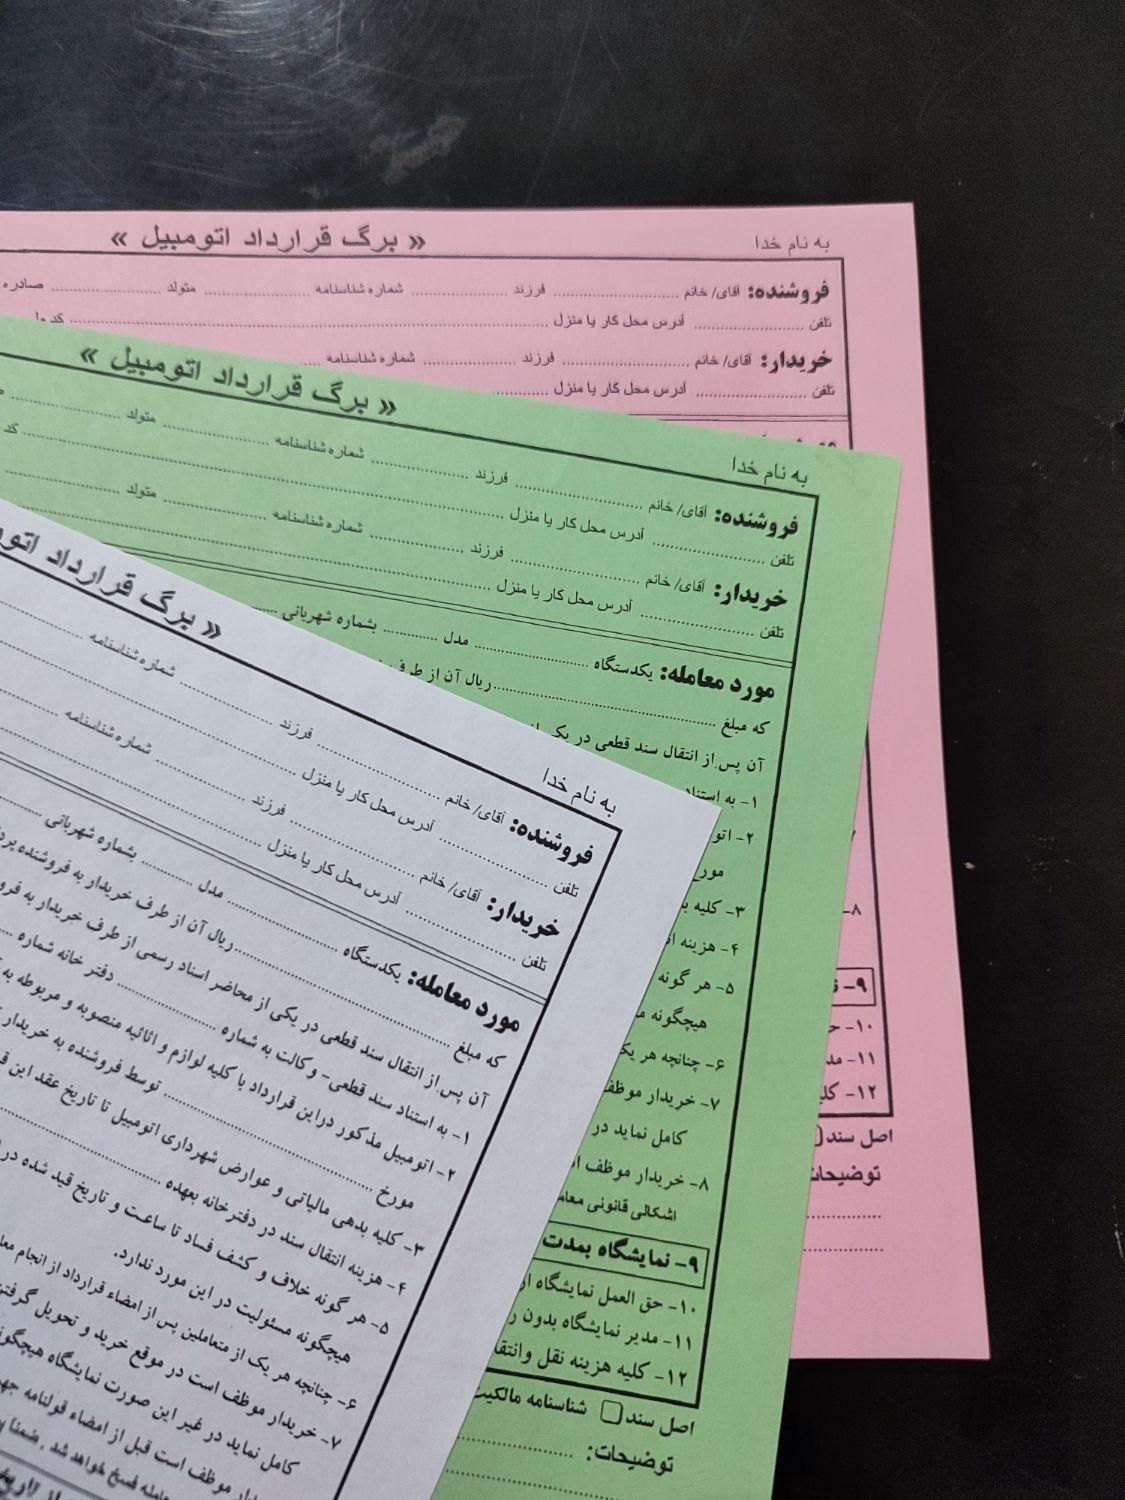 به نام خدا
« برگ قرارداد اتومبیل »
فروشنده: آقای/ خانم .......... فرزند .......... شماره شناسنامه .......... متولد .......... صادره
تلفن .......... آدرس محل کار یا منزل ..........
خریدار: آقای/ خانم .......... فرزند .......... شماره شناسنامه
تلفن .......... آدرس محل کار یا منزل ..........
۸-
۹-
۱۰-
۱۱- مد
۱۲-
اصل سند
توضیحات
به نام خدا
« برگ قرارداد اتومبیل »
فروشنده: آقای/ خانم .......... فرزند .......... شماره شناسنامه .......... متولد ..........
تلفن .......... آدرس محل کار یا منزل .......... کد
خریدار: آقای/ خانم .......... فرزند .......... شماره شناسنامه .......... متولد ..........
تلفن .......... آدرس محل کار یا منزل ..........
مورد معامله: یکدستگاه .......... مدل .......... بشماره شهربانی ..........
که مبلغ .......... ریال آن از طرف
آن پس از انتقال سند قطعی در یکی از
۱- به استناد
۲- اتو
مورخ
۳- کلیه
۴- هزینه
۵- هر گونه
هیچگونه
۶- چنانچه هر یک
۷- خریدار موظف
کامل نماید در
۸- خریدار موظف
اشکالی قانونی
۹- نمایشگاه بمدت
۱۰- حق العمل نمایشگاه از
۱۱- مدیر نمایشگاه بدون
۱۲- کلیه هزینه نقل وانتقا
اصل سند شناسنامه مالکیت
توضیحات: ..........
به نام خدا
« برگ قرارداد اتوم
فروشنده: آقای/ خانم .......... فرزند .......... شماره شناسنامه ..........
تلفن .......... آدرس محل کار یا منزل ..........
خریدار: آقای/ خانم .......... فرزند .......... شماره شناسنامه ..........
تلفن .......... آدرس محل کار یا منزل ..........
مورد معامله: یکدستگاه .......... مدل .......... بشماره شهربانی ..........
که مبلغ .......... ریال آن از طرف خریدار به فروشنده
آن پس از انتقال سند قطعی در یکی از محاضر اسناد رسمی از طرف خریدار به
۱- به استناد سند قطعی- وکالت به شماره .......... دفتر خانه شماره ..........
۲- اتومبیل مذکور دراین قرارداد با کلیه لوازم و اثاثیه منصوبه و مربوطه به
مورخ .......... توسط فروشنده به خریدار
۳- کلیه بدهی مالیاتی و عوارض شهرداری اتومبیل تا تاریخ عقد این
۴- هزینه انتقال سند در دفترخانه بعهده ..........
۵- هر گونه خلاف و کشف فساد تا ساعت و تاریخ قید شده در
هیچگونه مسئولیت در این مورد ندارد.
۶- چنانچه هر یک از متعاملین پس از امضاء قرارداد از انجام
۷- خریدار موظف است در موقع خرید و تحویل
کامل نماید در غیر این صورت نمایشگاه هیچگونه
موظف است قبل از امضاء قولنامه
فسخ خواهد شد . ضمنا